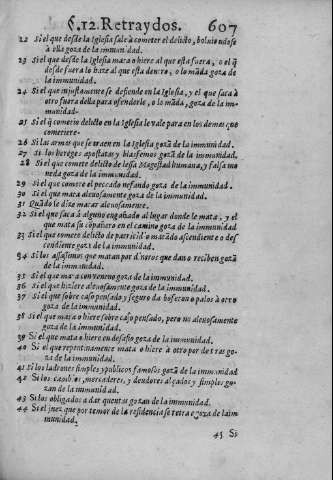 §.12. Retraydos. 607
22 Si el que desde la Iglesia sale à cometer el delicto, boluiendose
à ella goza de la immunidad.
23 Si el que desde la Iglesia mata o hiere al que esta fuera, o el q̃
desde fuera lo haze al que esta dentro, o lo mãda goza de
la immunidad.
24 Si el que injustamente se defiende en la Iglesia, y el que saca à
otro fuera della para ofenderle, o lo mãda, goza de la im-
munidad-
25 Si el q̃ comete delicto en la Iglesia le vale para en los demas que
cometiere-
26 Si las armas que se traen en la Iglesia gozã de la immunidad.
27 Si los hereges apostatas y blasfemos gozã de la immunidad.
28 Si el que comete delicto de lesa Magestad humana, y falsa mo
neda goza de la immunidad.
29 Si el que comete el peccado nefando goza de la immunidad.
30 Si el que mata aleuosamente goza de la immunidad.
31 Quãdo se dize matar aleuosamente.
32 Si el que saca à alguno engañado al lugar donde le mata, y el
que mata su cõpañero en el camino goza de la immunidad
33 Si el que comete delicto de parricidio matãdo ascendiente o des
cendiente goza de la immunidad.
34 Si los assasinos que matan por dineros que dan o reciben gozã
de la immunidad.
35 Si el que mata con veneno goza de la immunidad.
36 Si el que hiziere aleuosamente goza de la immunidad.
37 Si el que sobre caso pensado y seguro da bofeton o palos à otro
goza de la immunidad.
38 Si el que mata o hiere sobre caso pensado, pero no aleuosamente
goza de la immunidad.
39 Si el que mata o hiere en desafio goza de la immunidad.
40 Si el que repentinamente mata o hiere à otro por detras go-
za de la immunidad.
41 Si los ladrones simples y publicos famosos gozã de la immunidad
42 Si los mercaderes, y deudores alçados y simples go-
zan de la immunidad.
43 Si los obligados a dar quentas gozan de la immunidad.
44 Si el juez que por temor de la residencia se retrae goza de la im
munidad.
45 Si